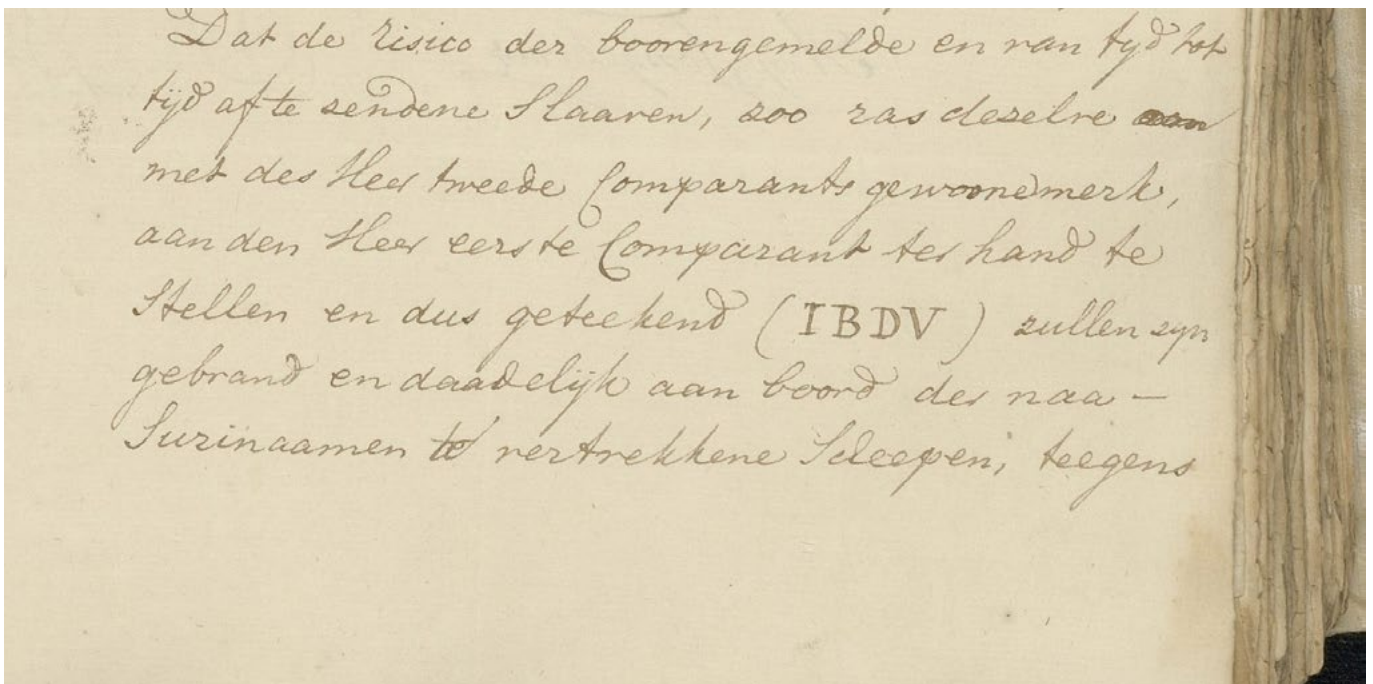 Dat de risico der bovengemelde en van tyd tot
tijd af te zendene Slaaven, zoo ras dezelve aan
met des Heer tweede Comparants gewoone merk,
aan den Heer eerste Comparant ter hand te
Stellen en dus geteekend (IBDV) zullen zyn
gebrand en daadelijk aan boord der naa –
Surinaamen te vertrekkene Scheepen, teegens